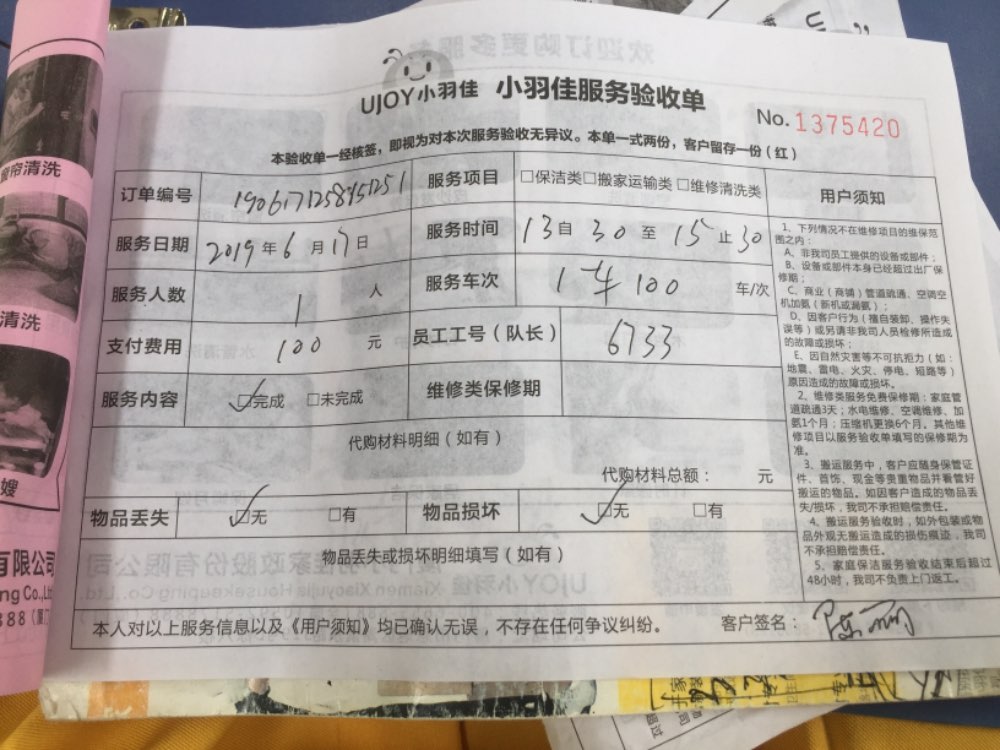 UJOY小羽佳 小羽佳服务验收单
No. 1375420
本验收单一经核签，即视为对本次服务验收无异议。本单一式两份，客户留存一份（红）
订单编号 服务项目 □保洁类□搬家运输类□维修清洗类
服务日期 2019年6月17日 服务时间 13自30至15止30
服务人数 1 人 服务车次 1车100 车/次
支付费用 100 元 员工工号（队长） 6733
服务内容 ☑完成 □未完成 维修类保修期
代购材料明细（如有）
代购材料总额： 元
物品丢失 ☑无 □有 物品损坏 ☑无 □有
物品丢失或损坏明细填写（如有）
本人对以上服务信息以及《用户须知》均已确认无误，不存在任何争议纠纷。 客户签名：
用户须知
1、下列情况不在维修项目的维保范
围之内：
A、非我司员工提供的设备或部件；
B、设备或部件本身已经超过出厂保
修期；
C、商业（商铺）管道疏通、空调空
机加氨（新机或漏氨）；
D、因客户行为（擅自装卸、操作失
误等）或另请非我司人员检修所造成
的故障或损坏；
E、因自然灾害等不可抗拒力（如：
地震、雷电、火灾、停电、短路等）
原因造成的故障或损坏。
2、维修类服务免费保修期：家庭管
道疏通3天；水电维修、空调维修、加
氨1个月；压缩机更换6个月。其他维
修项目以服务验收单填写的保修期为
准。
3、搬运服务中，客户应随身保管证
件、首饰、现金等贵重物品并看管好
搬运的物品。如因客户造成的物品丢
失/损坏，我司不承担赔偿责任。
4、搬运服务验收时，如外包装或物
品外观无搬运造成的损伤痕迹，我司
不承担赔偿责任。
5、家庭保洁服务验收结束后超过
48小时，我司不负责上门返工。
窗帘清洗
清洗
嫂
有限公司
ng Co.,Ltd
888（厦门